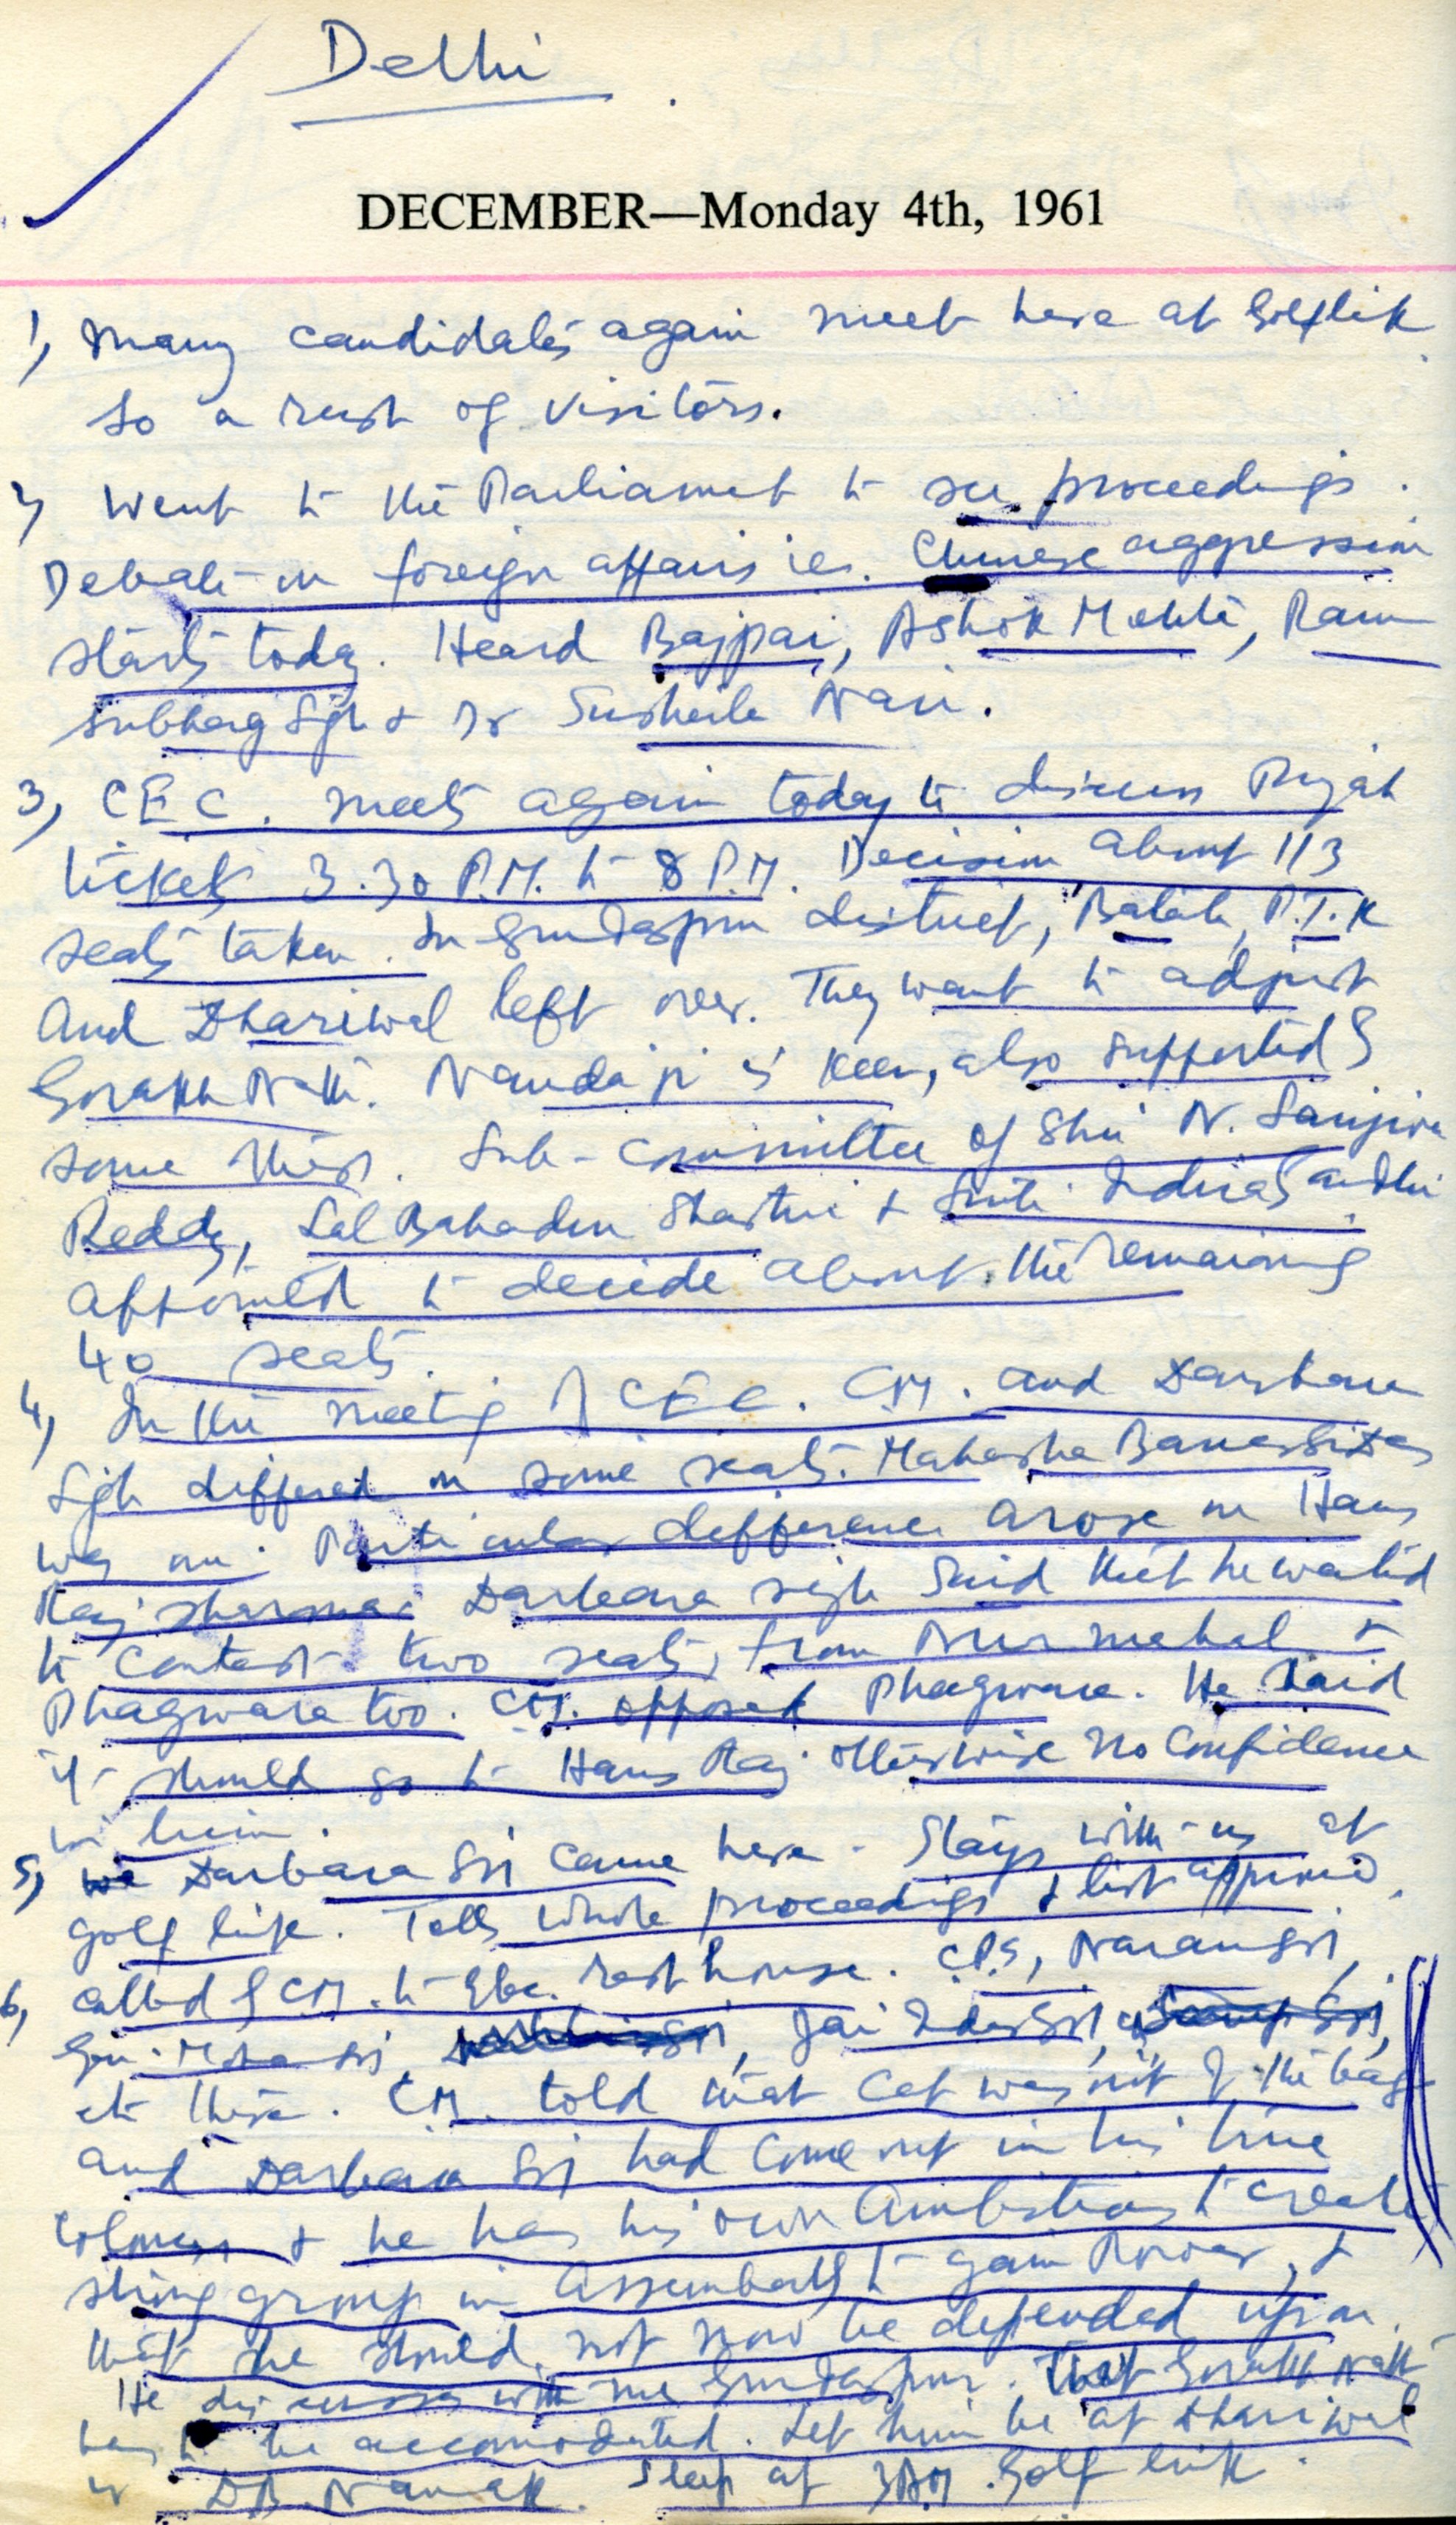 Delhi
DECEMBER—Monday 4th, 1961
1, Many candidates again meet here at Golf link
so a rush of visitors.
2, Went to the Parliament to see proceedings.
Debate on foreign affairs ie. Chinese aggression
starts today. Heard Bajpai, Ashok Mehta, Ram
Subhag Sgh & Dr Susheila Nair.
3, C.E.C. meets again today to discuss Punjab
tickets 3.30 P.M. to 8 P.M. Decision about 113
seats taken. In Gurdaspur district, Batala, P.T.K
and Dhariwal left over. They want to adjust
Gorakh Nath. Nandaji is keen, also supported by
some others. Sub-Committee of Shri N. Sanjiva
Reddy, Lal Bahadur Shastri & Smt. Indira Gandhi
appointed to decide about the remaining
40 seats.
4, In the meeting of C.E.C. CM. and Darbara
Sgh differed on some seats. Mahasha Banarsi Das
was one. Particular difference arose on Hans
Raj Sharma. Darbara Singh said that he wanted
to contest two seats, from Nurmahal &
Phagwara too. CM. opposed Phagwara. He said
it should go to Hans Raj otherwise no Confidence
in him.
5, Darbara Sgh came here. Stays with us at
golf link. Tells whole proceedings & list approved.
6, Called by CM. to Rest house. C.P.S, Narain Sgh,
Jai Inder Sgh,
etc there. CM. told that Cat was out of the bag
and Darbara Sgh had come out in his true
colours & he has his own ambitions to create
strong group in Assembly to gain Power, &
that he should not now be depended upon.
He discusses with me Gurdaspur. That Gorakh Nath
has to be accomodated. Let him be at Dhariwal
or D.B. Nanak. Sleep at 3AM. Golf link.